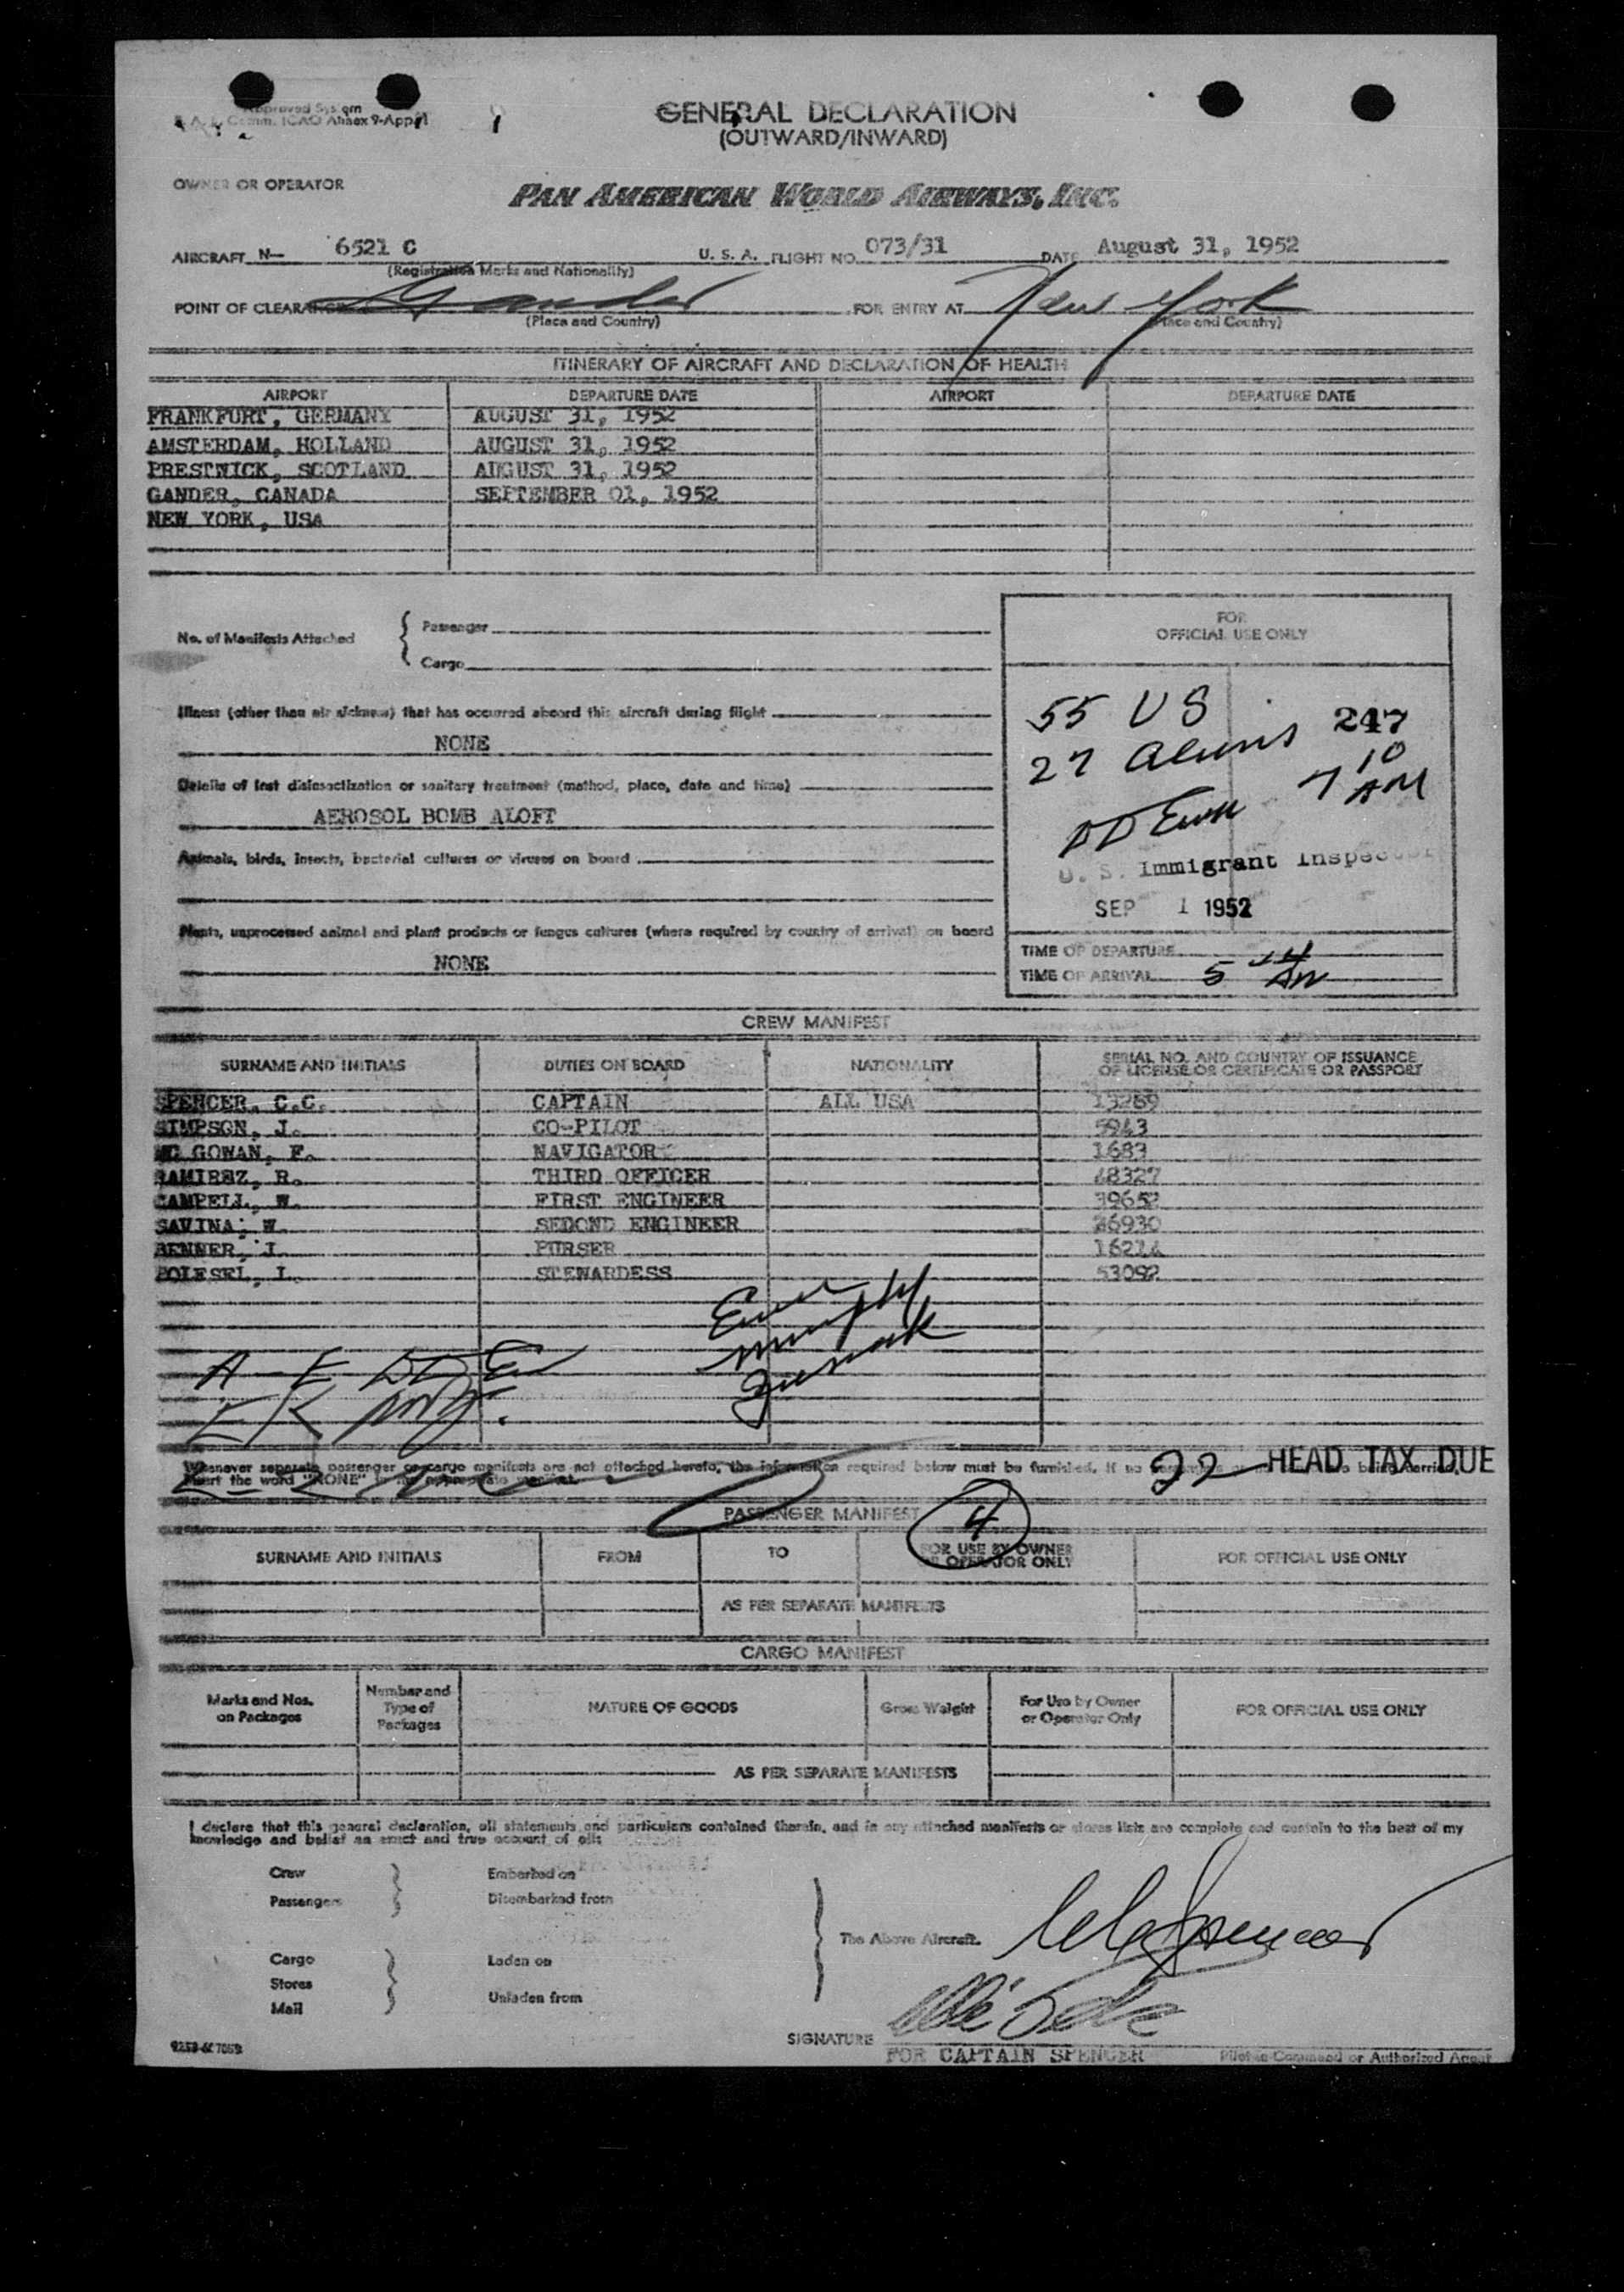 Approved System
Comm. ICAO Annex 9-App.1
GENERAL DECLARATION
(OUTWARD/INWARD)
OWNER OR OPERATOR
PAN AMERICAN WORLD AIRWAYS, INC.
AIRCRAFT N— 6521 C U. S. A. FLIGHT NO. 073/31 DATE August 31, 1952
(Registration Marks and Nationality)
POINT OF CLEARANCE Gander FOR ENTRY AT New York
(Place and Country) (Place and Country)
ITINERARY OF AIRCRAFT AND DECLARATION OF HEALTH
AIRPORT DEPARTURE DATE AIRPORT DEPARTURE DATE
FRANKFURT, GERMANY AUGUST 31, 1952
AMSTERDAM, HOLLAND AUGUST 31, 1952
PRESTWICK, SCOTLAND AUGUST 31, 1952
GANDER, CANADA SEPTEMBER 01, 1952
NEW YORK, USA
No. of Manifests Attached
Passenger
Cargo
Illness (other than air sickness) that has occurred aboard this aircraft during flight
NONE
Details of last disinsectization or sanitary treatment (method, place, date and time)
AEROSOL BOMB ALOFT
Animals, birds, insects, bacterial cultures or viruses on board
Plants, unprocessed animal and plant products or fungus cultures (where required by country of arrival) on board
NONE
FOR
OFFICIAL USE ONLY
55 US 247
27 Aliens 7 10 AM
U. S. Immigrant Inspector
SEP 1 1952
TIME OF DEPARTURE
TIME OF ARRIVAL 5 AM
CREW MANIFEST
SURNAME AND INITIALS DUTIES ON BOARD NATIONALITY SERIAL NO. AND COUNTRY OF ISSUANCE
OF LICENSE OR CERTIFICATE OR PASSPORT
SPENCER, C.C. CAPTAIN ALL USA 13269
SIMPSON, J. CO-PILOT 5943
MC GOWAN, F. NAVIGATOR 1683
RAMIREZ, R. THIRD OFFICER 48327
CAMPELL, W. FIRST ENGINEER 39652
SAVINA, W. SEDOND ENGINEER 36930
BENNER, J. PURSER 16214
POLESEL, I. STEWARDESS 53092
Murphy
Whenever separate passenger or cargo manifests are not attached hereto, the information required below must be furnished. If no
insert the word "NONE" in the appropriate manifest.
22 HEAD TAX DUE
PASSENGER MANIFEST 4
SURNAME AND INITIALS FROM TO FOR USE BY OWNER
OR OPERATOR ONLY FOR OFFICIAL USE ONLY
AS PER SEPARATE MANIFESTS
CARGO MANIFEST
Marks and Nos.
on Packages
Number and
Type of
Packages
NATURE OF GOODS Gross Weight
For Use by Owner
or Operator Only
FOR OFFICIAL USE ONLY
AS PER SEPARATE MANIFESTS
I declare that this general declaration, all statements and particulars contained therein, and in any attached manifests or stores lists are complete and contain to the best of my
knowledge and belief an exact and true account of all:
Crew Embarked on
Passengers Disembarked from
The Above Aircraft.
Cargo Laden on
Stores
Mail Unladen from
SIGNATURE
FOR CAPTAIN SPENCER Pilot-in-Command or Authorized Agent